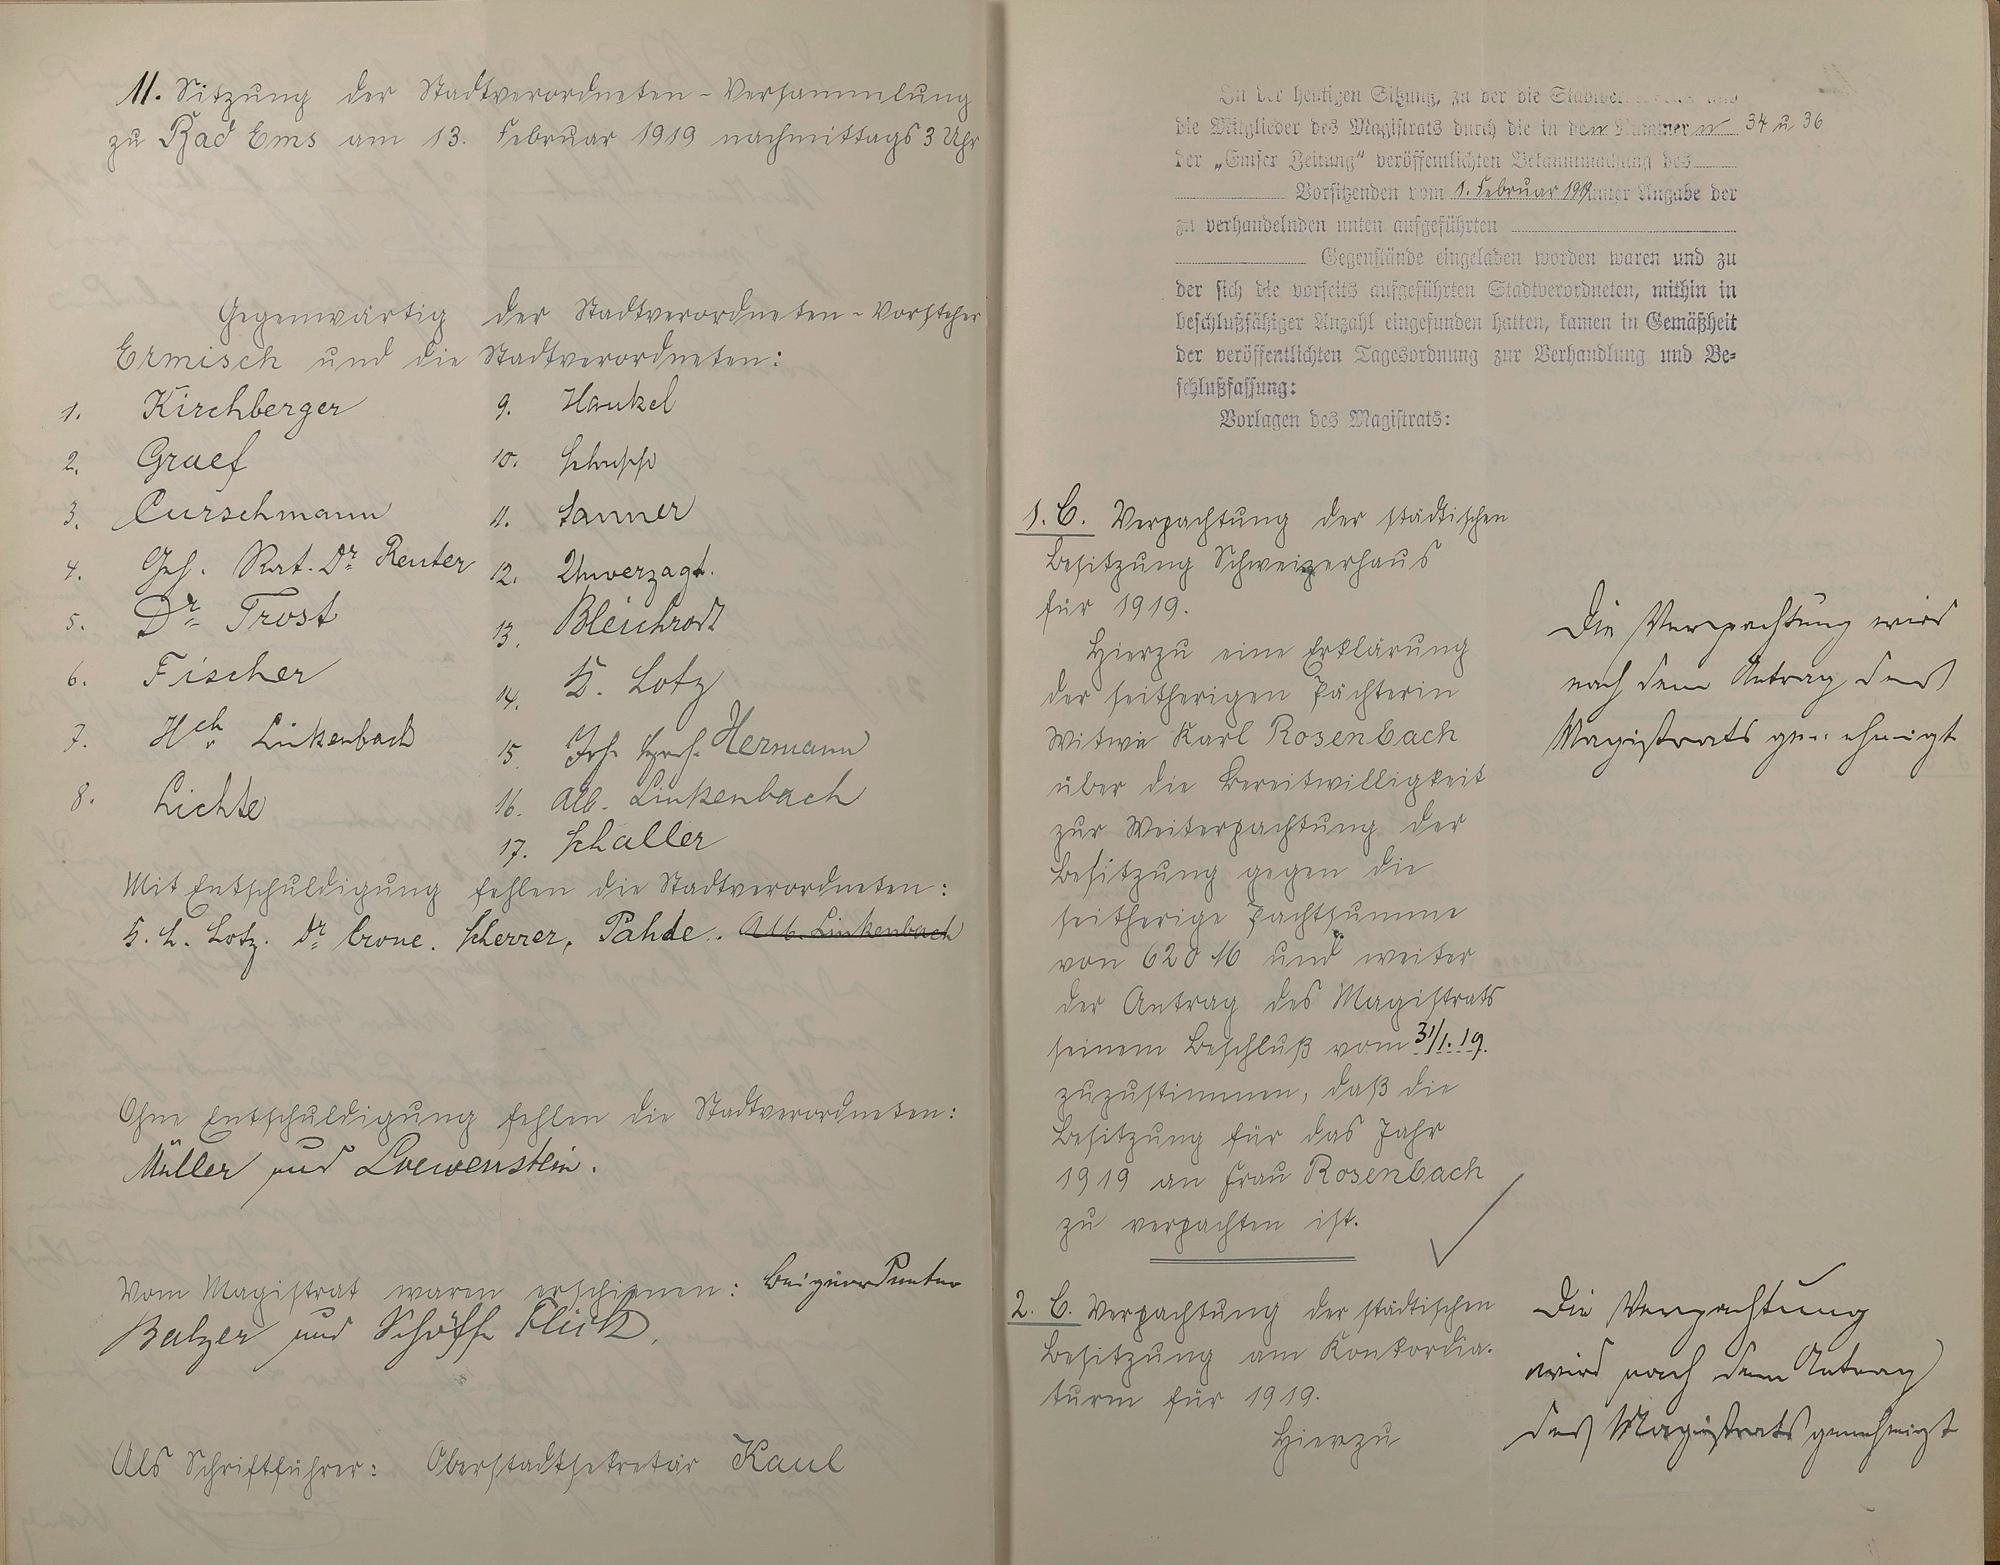 11. Sitzung der Stadtverordneten-Versammlung
zu Bad Ems am 13. Februar 1919 nachmittags 3 Uhr
Gegenwärtig der Stadtverordneten-Vorsteher
Ermisch und die Stadtverordneten:
1. Kirchberger
2. Graef
3. Curschmann
4. Geh. Rat. Dr. Reuter
5. Dr. Trost
6. Fischer
7. Hch. Linkenbach
8. Lichte
9. Hankel
10. Schupp
11. Sanner
12. Unverzagt.
13. Bleichrodt
14. K. Lotz
15. Joh. Hermann
16. Alb. Linkenbach
17. Schaller
Mit Entschuldigung fehlen die Stadtverordneten:
K. L. Lotz. Dr. Crone. Scherrer, Pahde. Alb. Linkenbach
Ohne Entschuldigung fehlen die Stadtverordneten:
Müller und Loewenstein.
Vom Magistrat waren erschienen: Beigeordneter
Balzer und Schöffe Flick.
Als Schriftführer: Oberstadtsekretär Kaul
In der heutigen Sitzung, zu der die
die Mitglieder des Magistrats durch die in den Nummern 34 u 36
der „Emser Zeitung“ veröffentlichten Bekanntmachung des
Vorsitzenden vom 1. Februar 1919 unter Angabe der
zu verhandelnden unten aufgeführten
Gegenstände eingeladen worden waren und zu
der sich die vorseits aufgeführten Stadtverordneten, mithin in
beschlußfähiger Anzahl eingefunden hatten, kamen in Gemäßheit
der veröffentlichten Tagesordnung zur Verhandlung und Be-
schlußfassung:
Vorlagen des Magistrats:
1. C. Verpachtung der städtischen
Besitzung Schweizerhaus
für 1919.
Hierzu eine Erklärung
der seitherigen Pächterin
Witwe Karl Rosenbach
über die Bereitwilligkeit
zur Weiterpachtung der
Besitzung gegen die
seitherige Pachtsumme
von 620 M und weiter
der Antrag des Magistrats
seinem Beschluß vom 31/1. 19.
zuzustimmen, daß die
Besitzung für das Jahr
1919 an Frau Rosenbach
zu verpachten ist.
Die Verpachtung wird
nach dem Antrag des
Magistrats genehmigt
2. C. Verpachtung der städtischen
Besitzung am Konkordia-
turm für 1919.
Hierzu
Die Verpachtung
wird nach dem Antrag
des Magistrats genehmigt